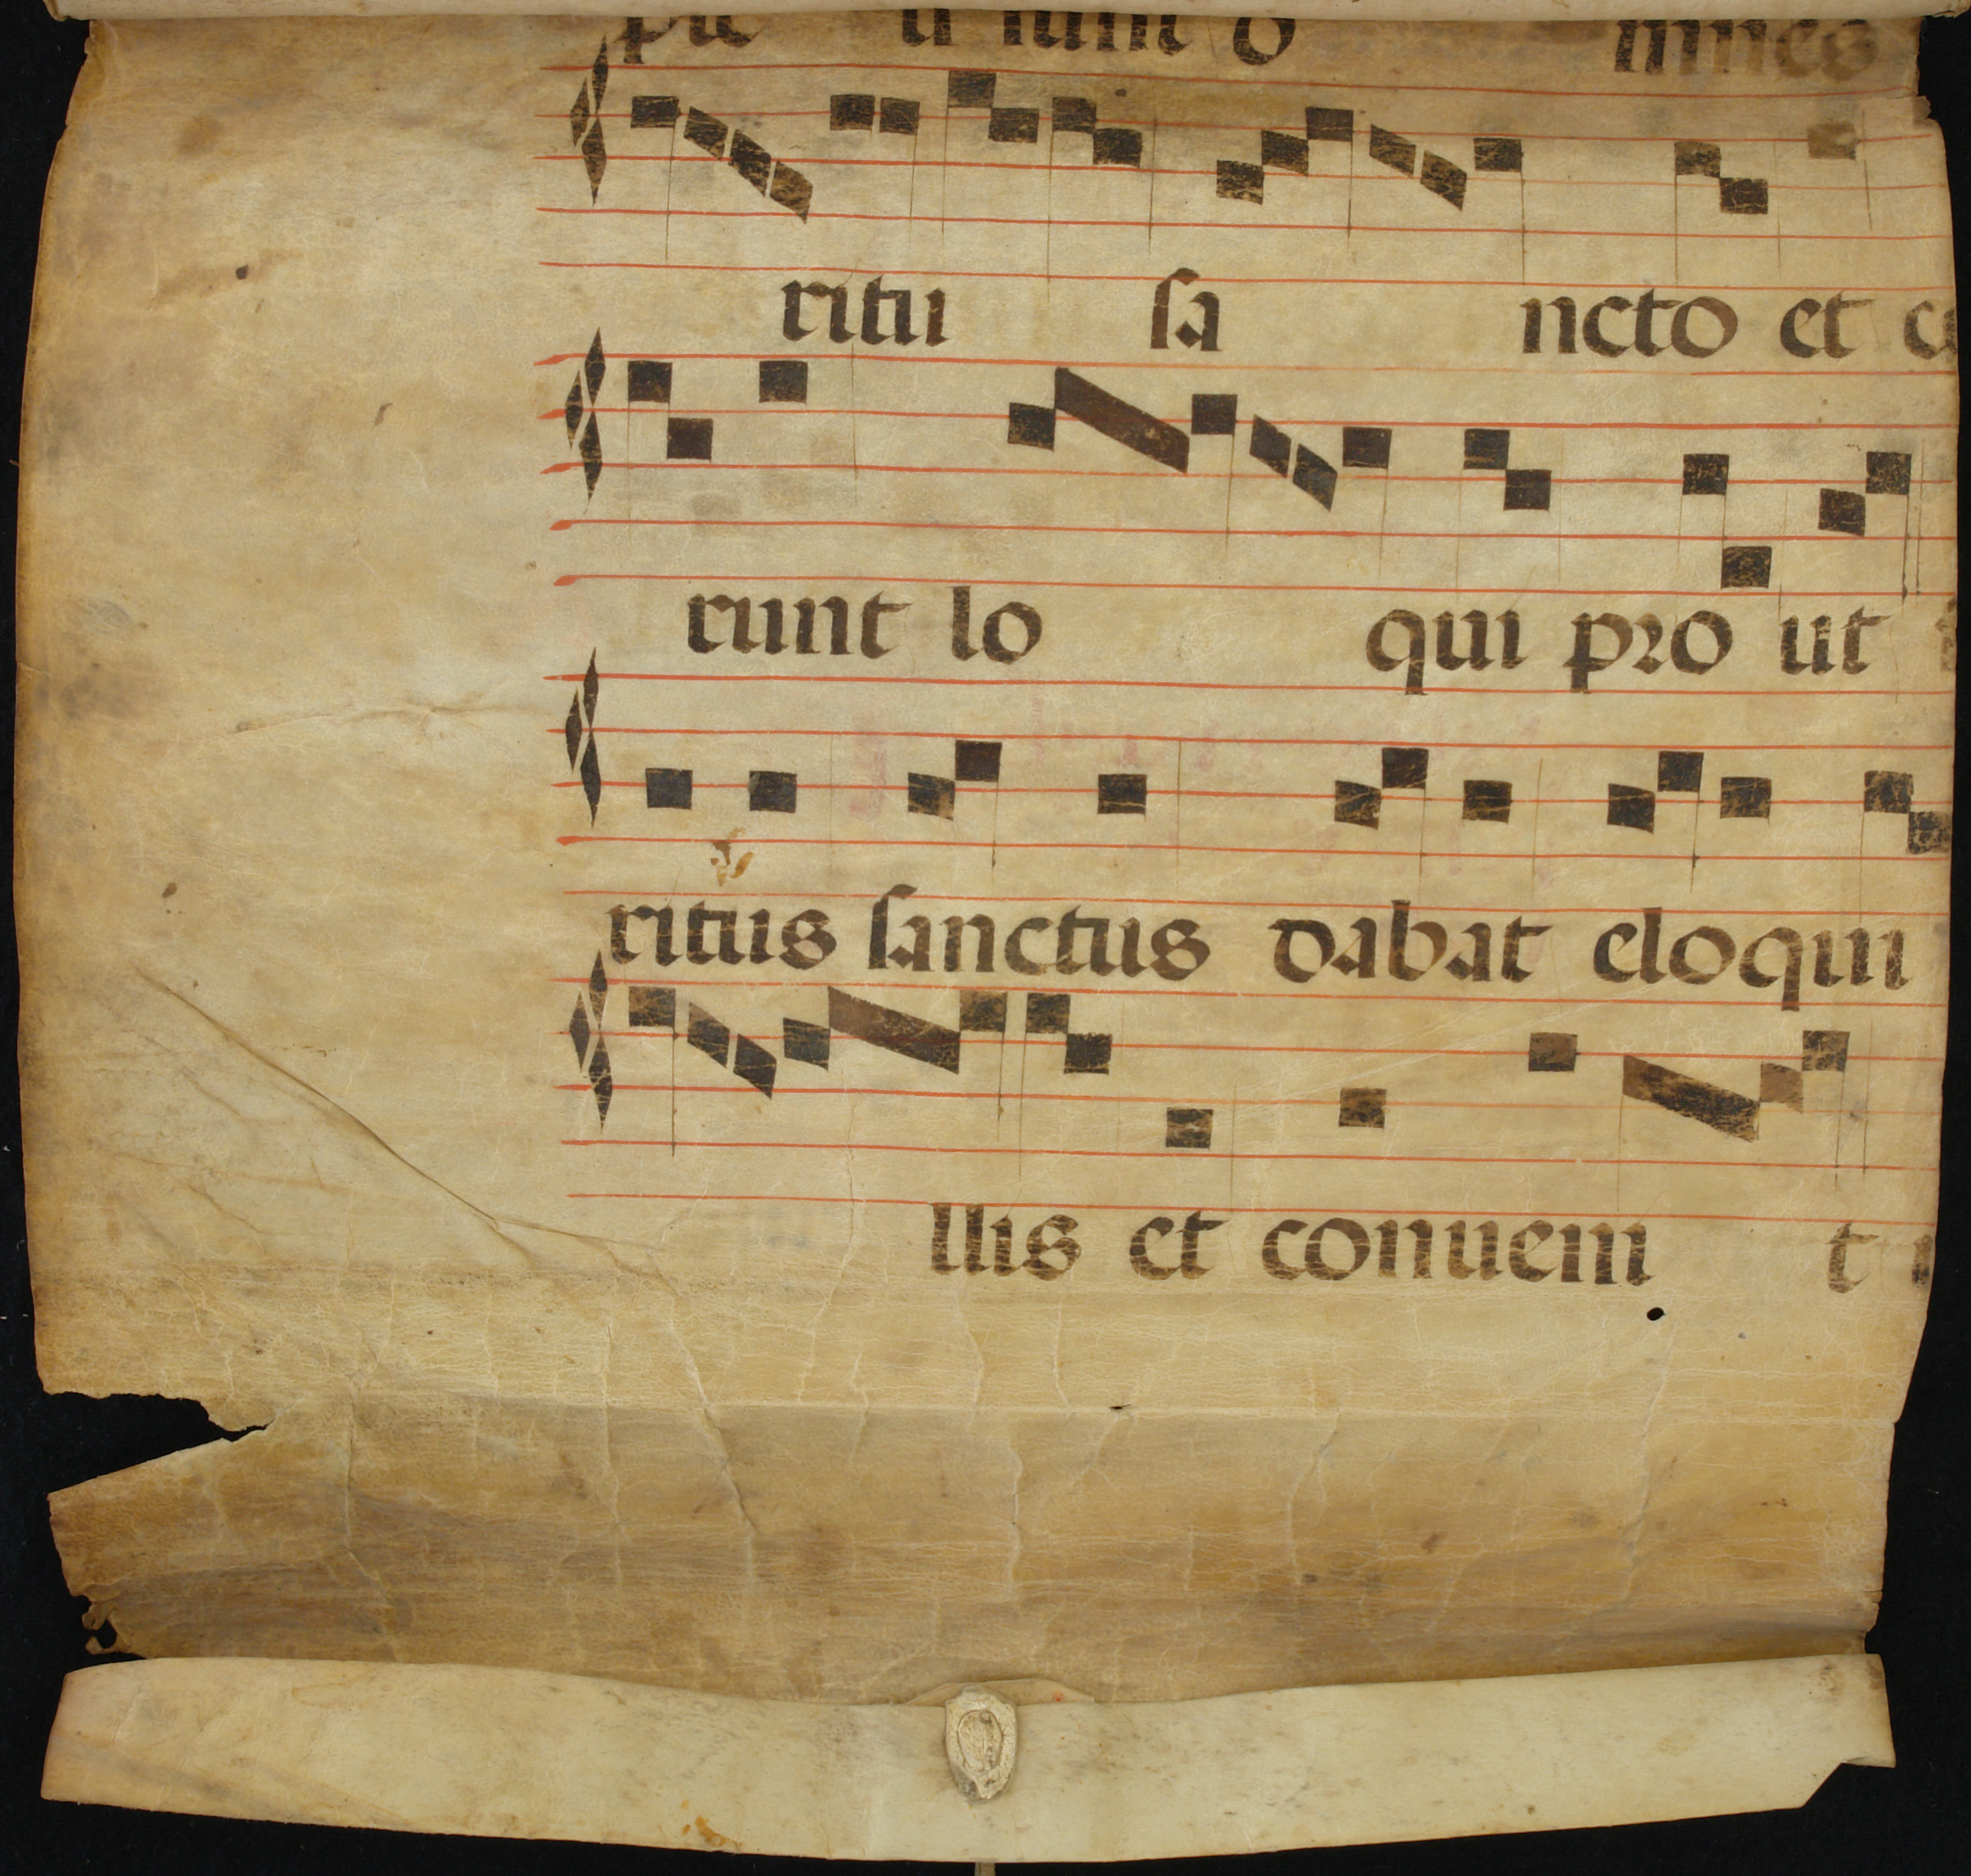 ple ti sunt o mnes
ritu sa ncto et c
runt lo qui pro ut
ritus sanctus dabat eloqui
llis et conueni t